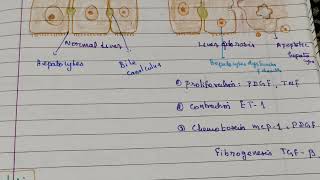 Normal Liver
Liver fibrosis
Apoptotic
Hepatocytes
Bile
canliculus
Hepatocytes dysfunction
① Proliferation: PDGF, TNF
② Contraction ET-1
③ Chemotaxis MCP-1, PDGF
Fibrogenesis TGF-β